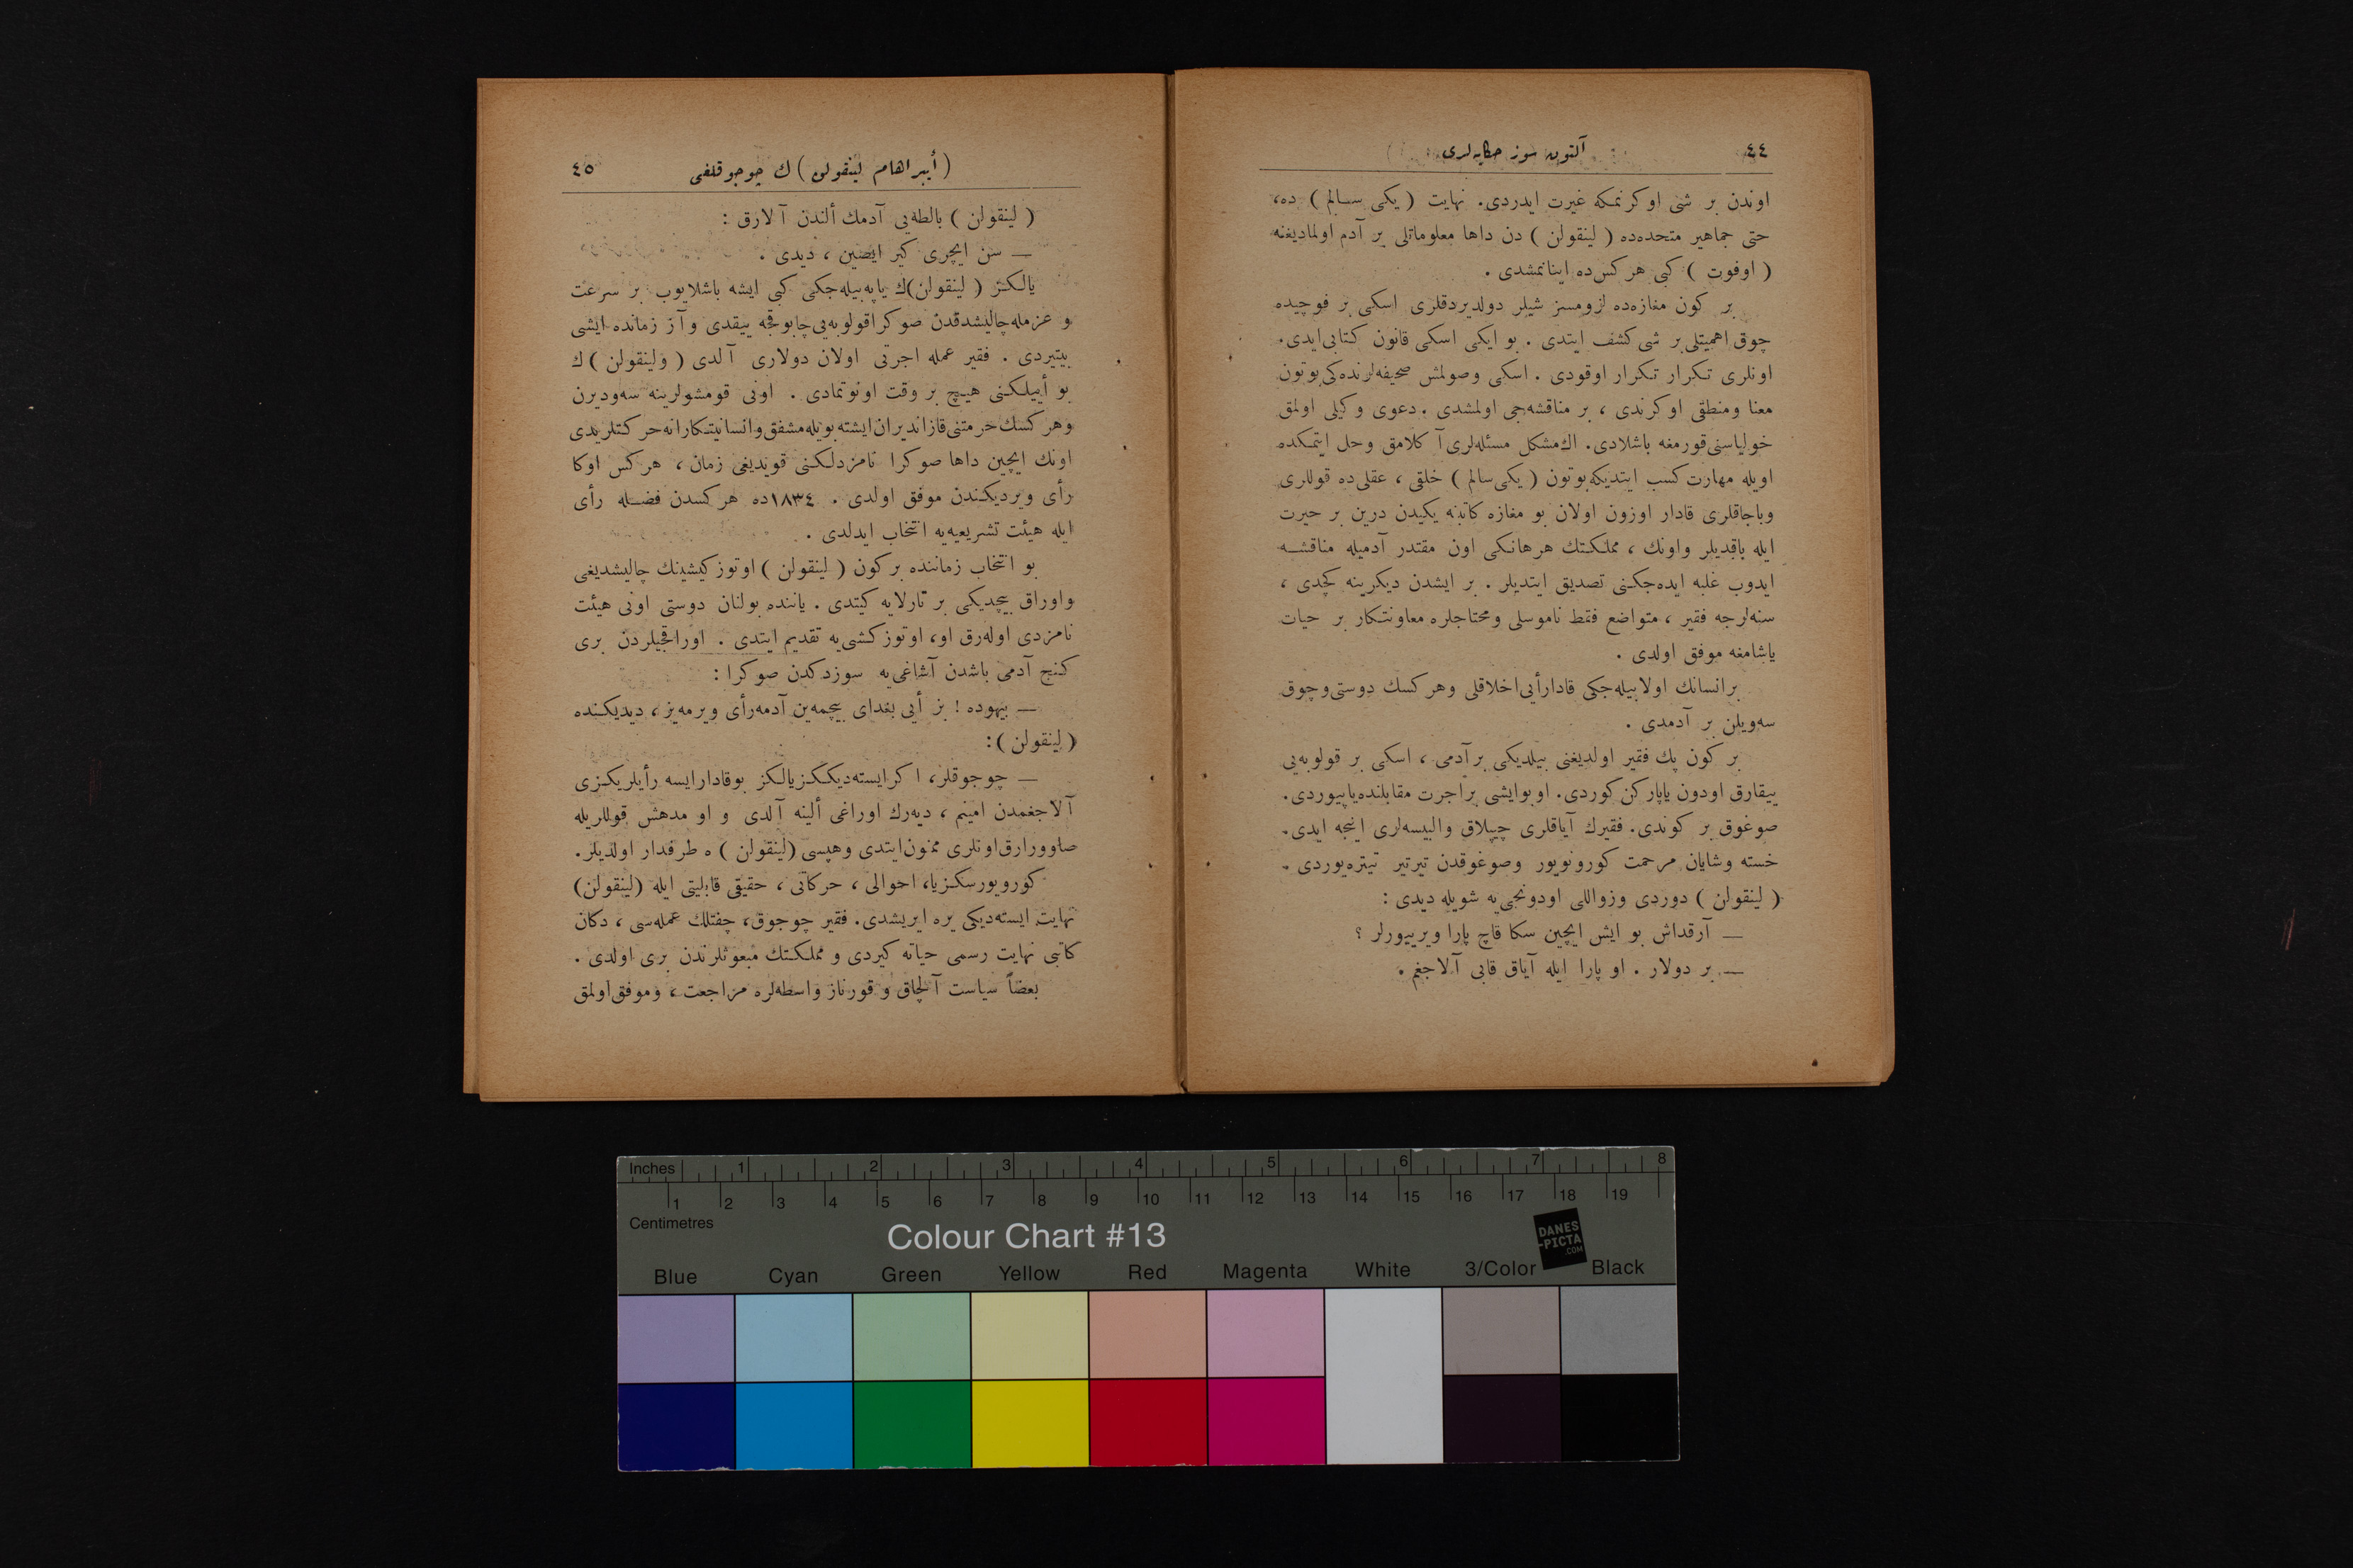 ٤٤
آلتون سوز حكایه‌لری
اوندن بر شی اوكرنمكه غیرت ایدردی. نهایت ( یكی سالم ) ده،
حتی جماهیر متحده‌ده ( لینقولن ) دن داها معلوماتلی بر آدم اولمادیغنه
( اوفوت ) كبی هركس‌ده اینانمشدی .
بر كون مغازه‌ده لزومسز شیلر دولدیردقلری اسكی بر فوچیده
چوق اهمیتلی بر شی كشف ایتدی . بو ایكی اسكی قانون كتابی ایدی.
اونلری تكرار تكرار اوقودی . اسكی وصولمش صحیفه‌لرنده‌كی بوتون
معنا ومنطقی اوكرندی ، بر مناقشه‌جی اولمشدی . دعوی وكیلی اولمق
خولیاسنی قورمغه باشلادی. اك مشكل مسئله‌لری آ كلامق وحل ایتمكده
اویله مهارت كسب ایتدیكه بوتون ( یكی سالم ) خلقی ، عقلی ده قوللری
وباجاقلری قادار اوزون اولان بو مغازه كاتبنه یكیدن درین بر حیرت
ایله باقدیلر واونك ، مملكتك هرهانكی اون مقتدر آدمیله مناقشه
ایدوب غلبه ایده‌جكنی تصدیق ایتدیلر . بر ایشدن دیكرینه كچدی ،
سنه‌لرجه فقیر ، متواضع فقط ناموسلی ومحتاجلره معاونتكار بر حیات
یاشامغه موفق اولدی .
بر انسانك اولابیله‌جكی قادار أیی اخلاقلی وهركسك دوستی وچوق
سه‌ویلن بر آدمدی .
بر كون پك فقیر اولدیغنی بیلدیكی بر آدمی ، اسكی بر قولوبه‌یی
ییقارق اودون یاپاركن كوردی. او بو ایشی بر اجرت مقابلنده یاپییوردی.
صوغوق بر كوندی. فقیرك آیاقلری چیپلاق والبیسه‌لری اینجه ایدی.
خسته وشایان مرحمت كورونویور وصوغوقدن تیرتیر تیتره‌یوردی .
( لینقولن ) دوردی وزواللی اودونجی‌یه شویله دیدی :
— آرقداش بو ایش ایچین سكا قاچ پارا ویرییورلر ؟
— بر دولار . او پارا ایله آیاق قابی آلاجغم .
( أیبراهام لینقولن ) ك چوجوقلغی
٤٥
( لینقولن ) بالطه‌یی آدمك ألندن آلارق :
— سن ایچری كیر ایصین ، دیدی .
یالكز ( لینقولن)ك یاپه‌بیله‌جكی كبی ایشه باشلایوب بر سرعت
و عزمله چالیشدقدن صوكرا قولوبه‌یی چابوقجه ییقدی و آز زمانده ایشی
بیتیردی . فقیر عمله اجرتی اولان دولاری آلدی ( ولینقولن )ك
بو أییلكنی هیچ بر وقت اونوتمادی . اونی قومشولرینه سه‌ودیرن
وهركسك حرمتنی قازاندیران ایشته بویله مشفق وانسانیتكارانه حركتلریدی
اونك ایچین داها صوكرا نامزدلكنی قویدیغی زمان ، هركس اوكا
رأی ویردیكندن موفق اولدی . ١٨٣٤ده هركسدن فضله رأی
ایله هیئت تشریعیه‌یه انتخاب ایدلدی .
بو انتخاب زماننده بر كون ( لینقولن ) اوتوز كیشینك چالیشدیغی
واوراق بیچدیكی بر تارلایه كیتدی . یاننده بولنان دوستی اونی هیئت
نامزدی اوله‌رق او، اوتوز كشی‌یه تقدیم ایتدی . اوراقجیلردن بری
كنج آدمی باشدن آشاغی‌یه سوزدكدن صوكرا :
— بیهوده ! بز أیی بغدای بیچمه‌ین آدمه رأی ویرمه‌یز ، دیدیكنده
( لینقولن ) :
— چوجوقلر، اكر ایسته‌دیككز یالكز بوقادار ایسه رأیلریكزی
آلاجغمدن امینم ، دیه‌رك اوراغی ألینه آلدی و او مدهش قوللریله
صاوورارق اونلری ممنون ایتدی وهپسی (لینقولن ) ه طرفدار اولدیلر.
كورویورسكزیا، احوالی ، حركاتی ، حقیقی قابلیتی ایله (لینقولن)
نهایت ایسته‌دیكی یره ایریشدی. فقیر چوجوق، چفتلك عمله‌سی ، دكان
كاتبی نهایت رسمی حیاته كیردی و مملكتك مبعوثلرندن بری اولدی .
بعضاً سیاست آلچاق و قورناز واسطه‌لره مراجعت، وموفق اولمق
Inches 1 2 3 4 5 6 7 8
1 2 3 4 5 6 7 8 9 10 11 12 13 14 15 16 17 18 19
Centimetres
Colour Chart #13
DANES
-PICTA
.COM
Blue Cyan Green Yellow Red Magenta White 3/Color Black